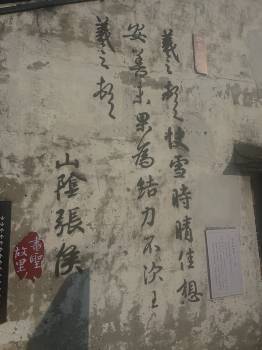 羲之頓首快雪時晴佳想
安善未果為結力不次王
羲之頓首
山陰張侯
書聖
故里